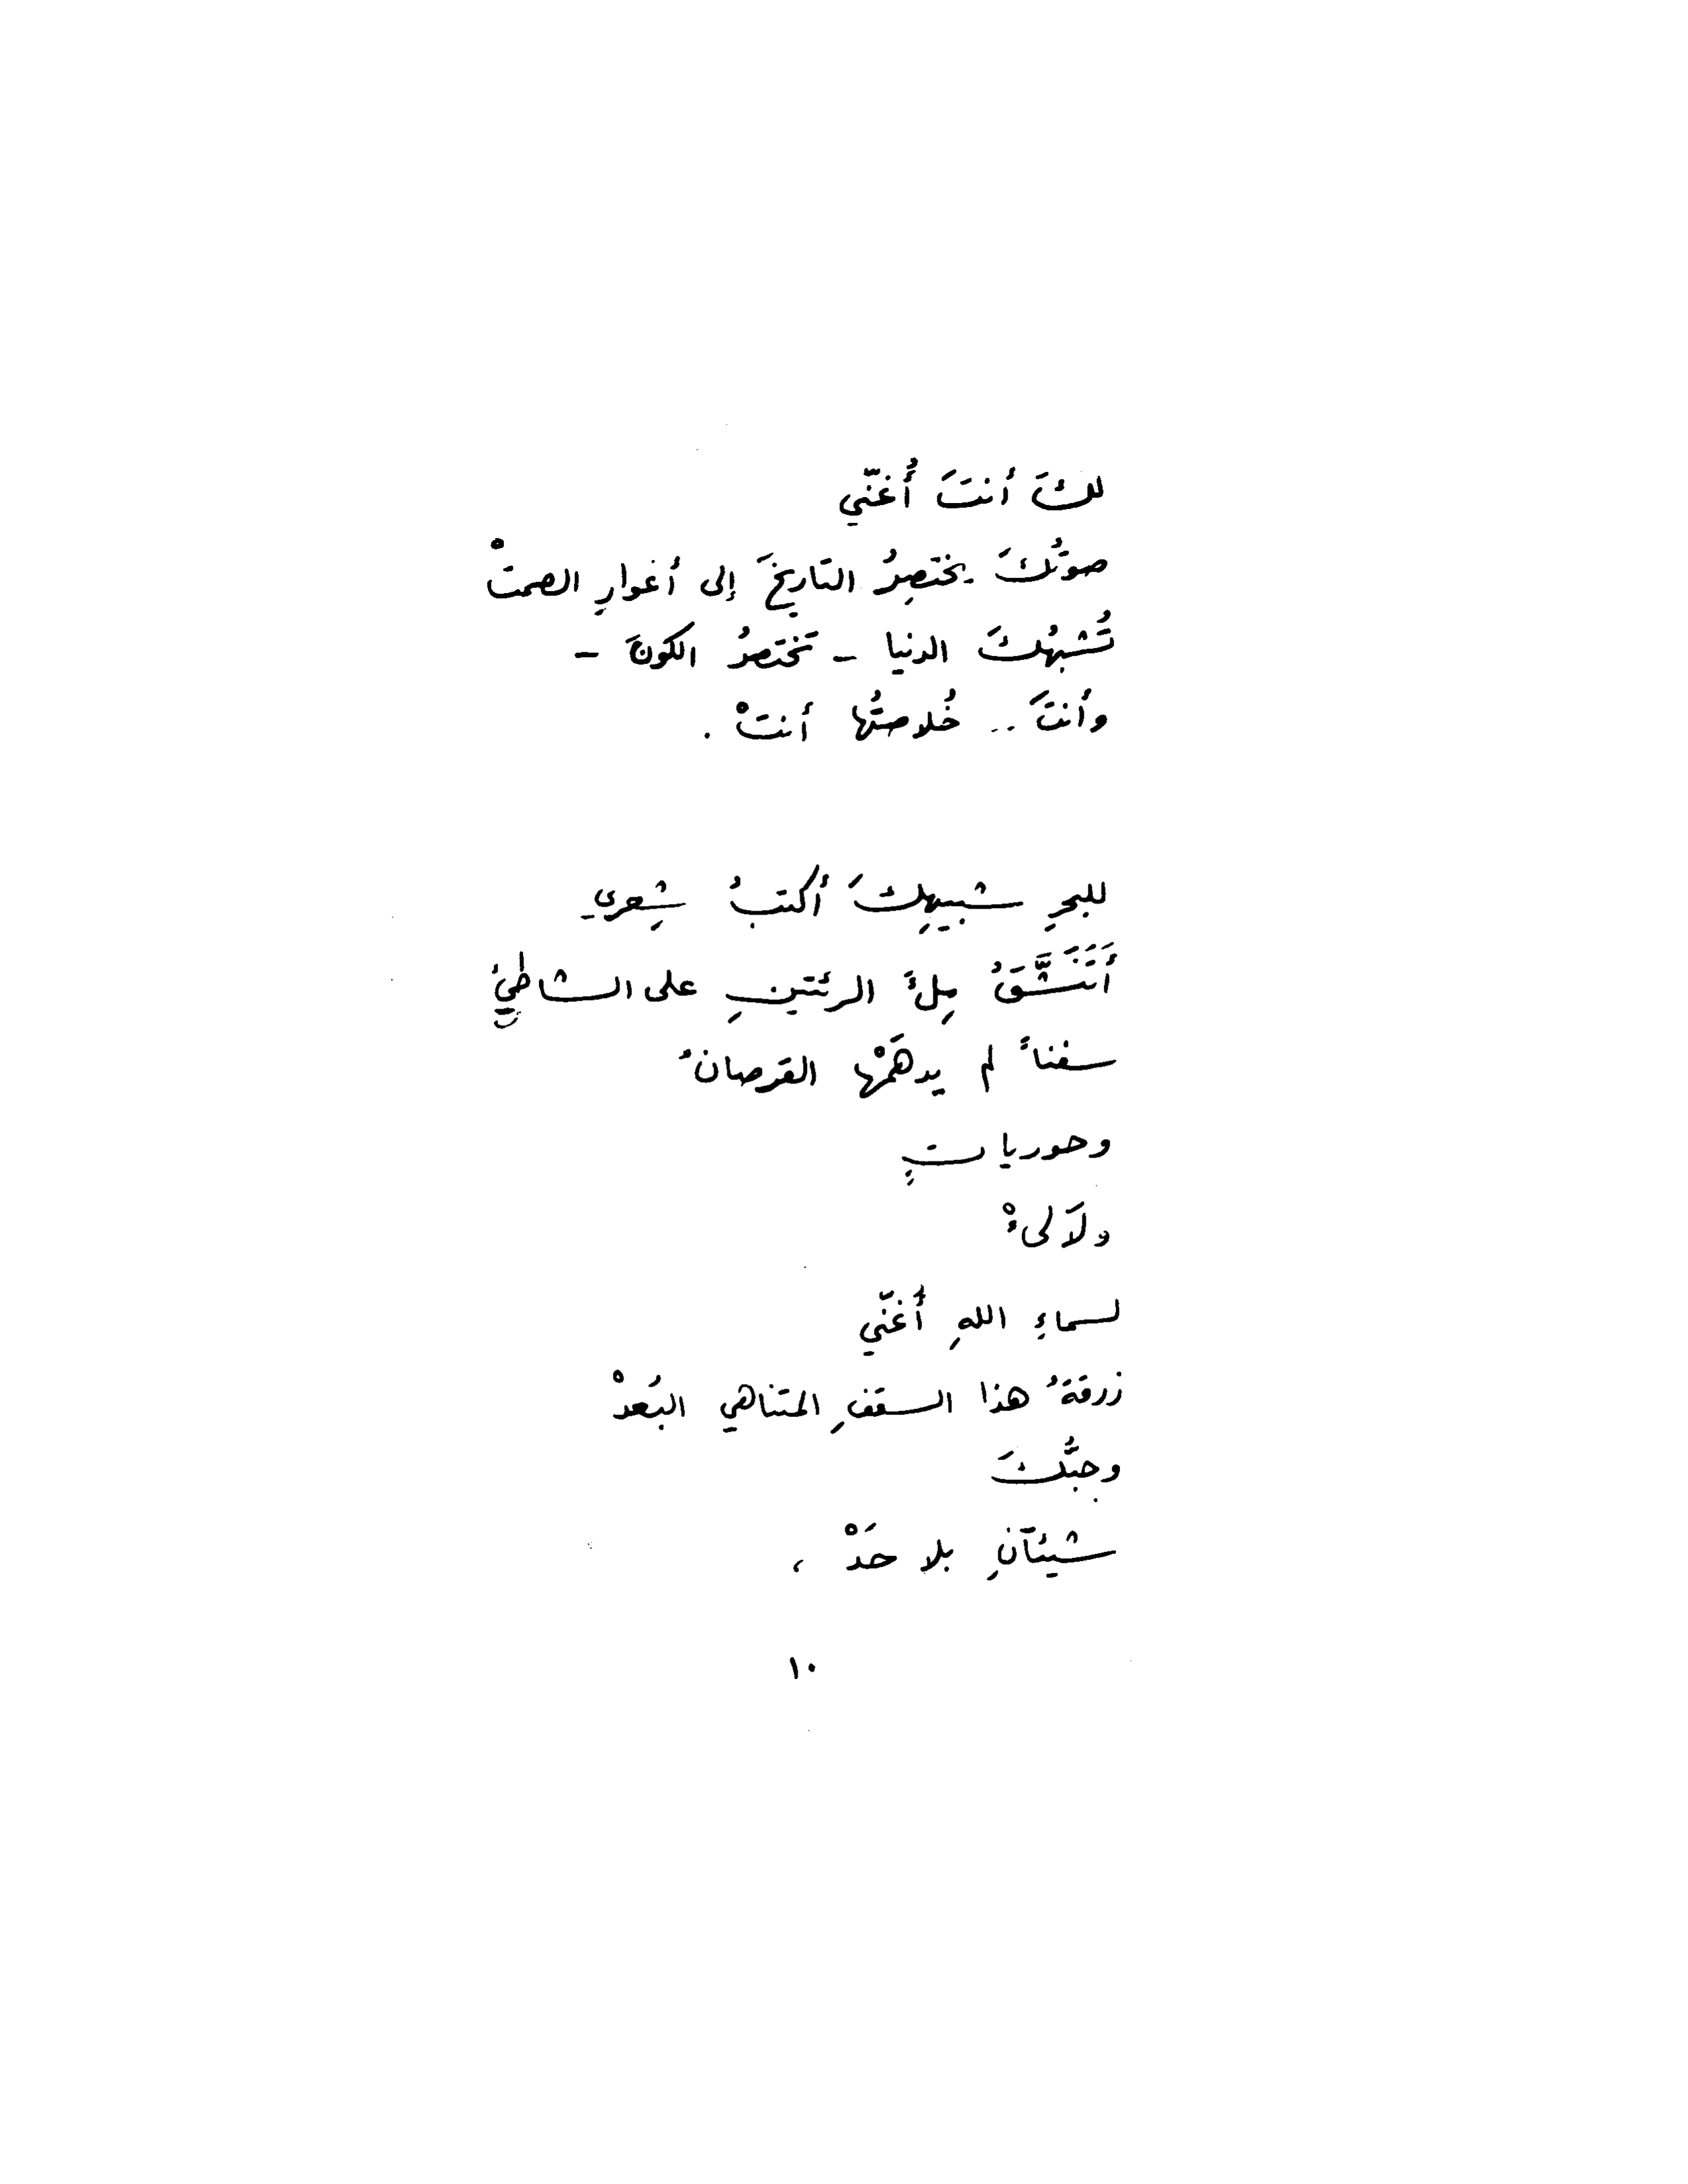 لكَ أنتَ أُغنّي
صوتُكَ يختصِرُ التاريخَ إلى أغوارِ الصمتْ
تُشبهُكَ الدنيا - تختصرُ الكونَ -
وأنتَ .. خُلاصتُها أنتْ .
للبحرِ شبيهِكَ أكتبُ شِعري
أَتَنَشَّقُ مِلءَ الرئتينِ على الشاطئِ
سفناً لم يدهَمْها القرصانُ
وحورياتٍ
ولآلىءْ
لسماءِ اللهِ أُغنّي
زرقةُ هذا السقفِ المتناهي البُعدْ
وحبُّكَ
شيئآنِ بلا حَدْ ،
١٠